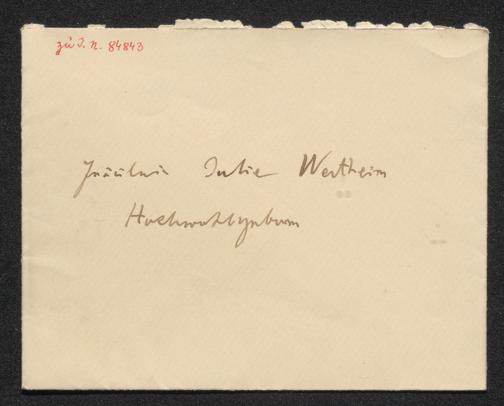 zu I. N. 84843
Fräulein Julie Wertheim
Hochwohlgeboren